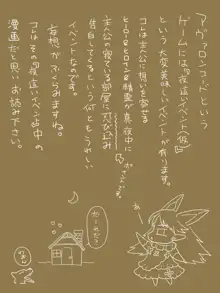 アヴァロンコードという
ゲームには『夜這いイベント(仮)』
という大変美味しいイベントが有ります。
コレは主人公に想いをよせる
ヒーロー&ヒロイン&精霊が真夜中に
主人公の寝ている部屋に忍び込み
告白してくるという何ともうれしい
イベントなのです。
妄想がふくらみますね。
コレはその『夜這いイベント』中の
漫画だと思いお読み下さい。